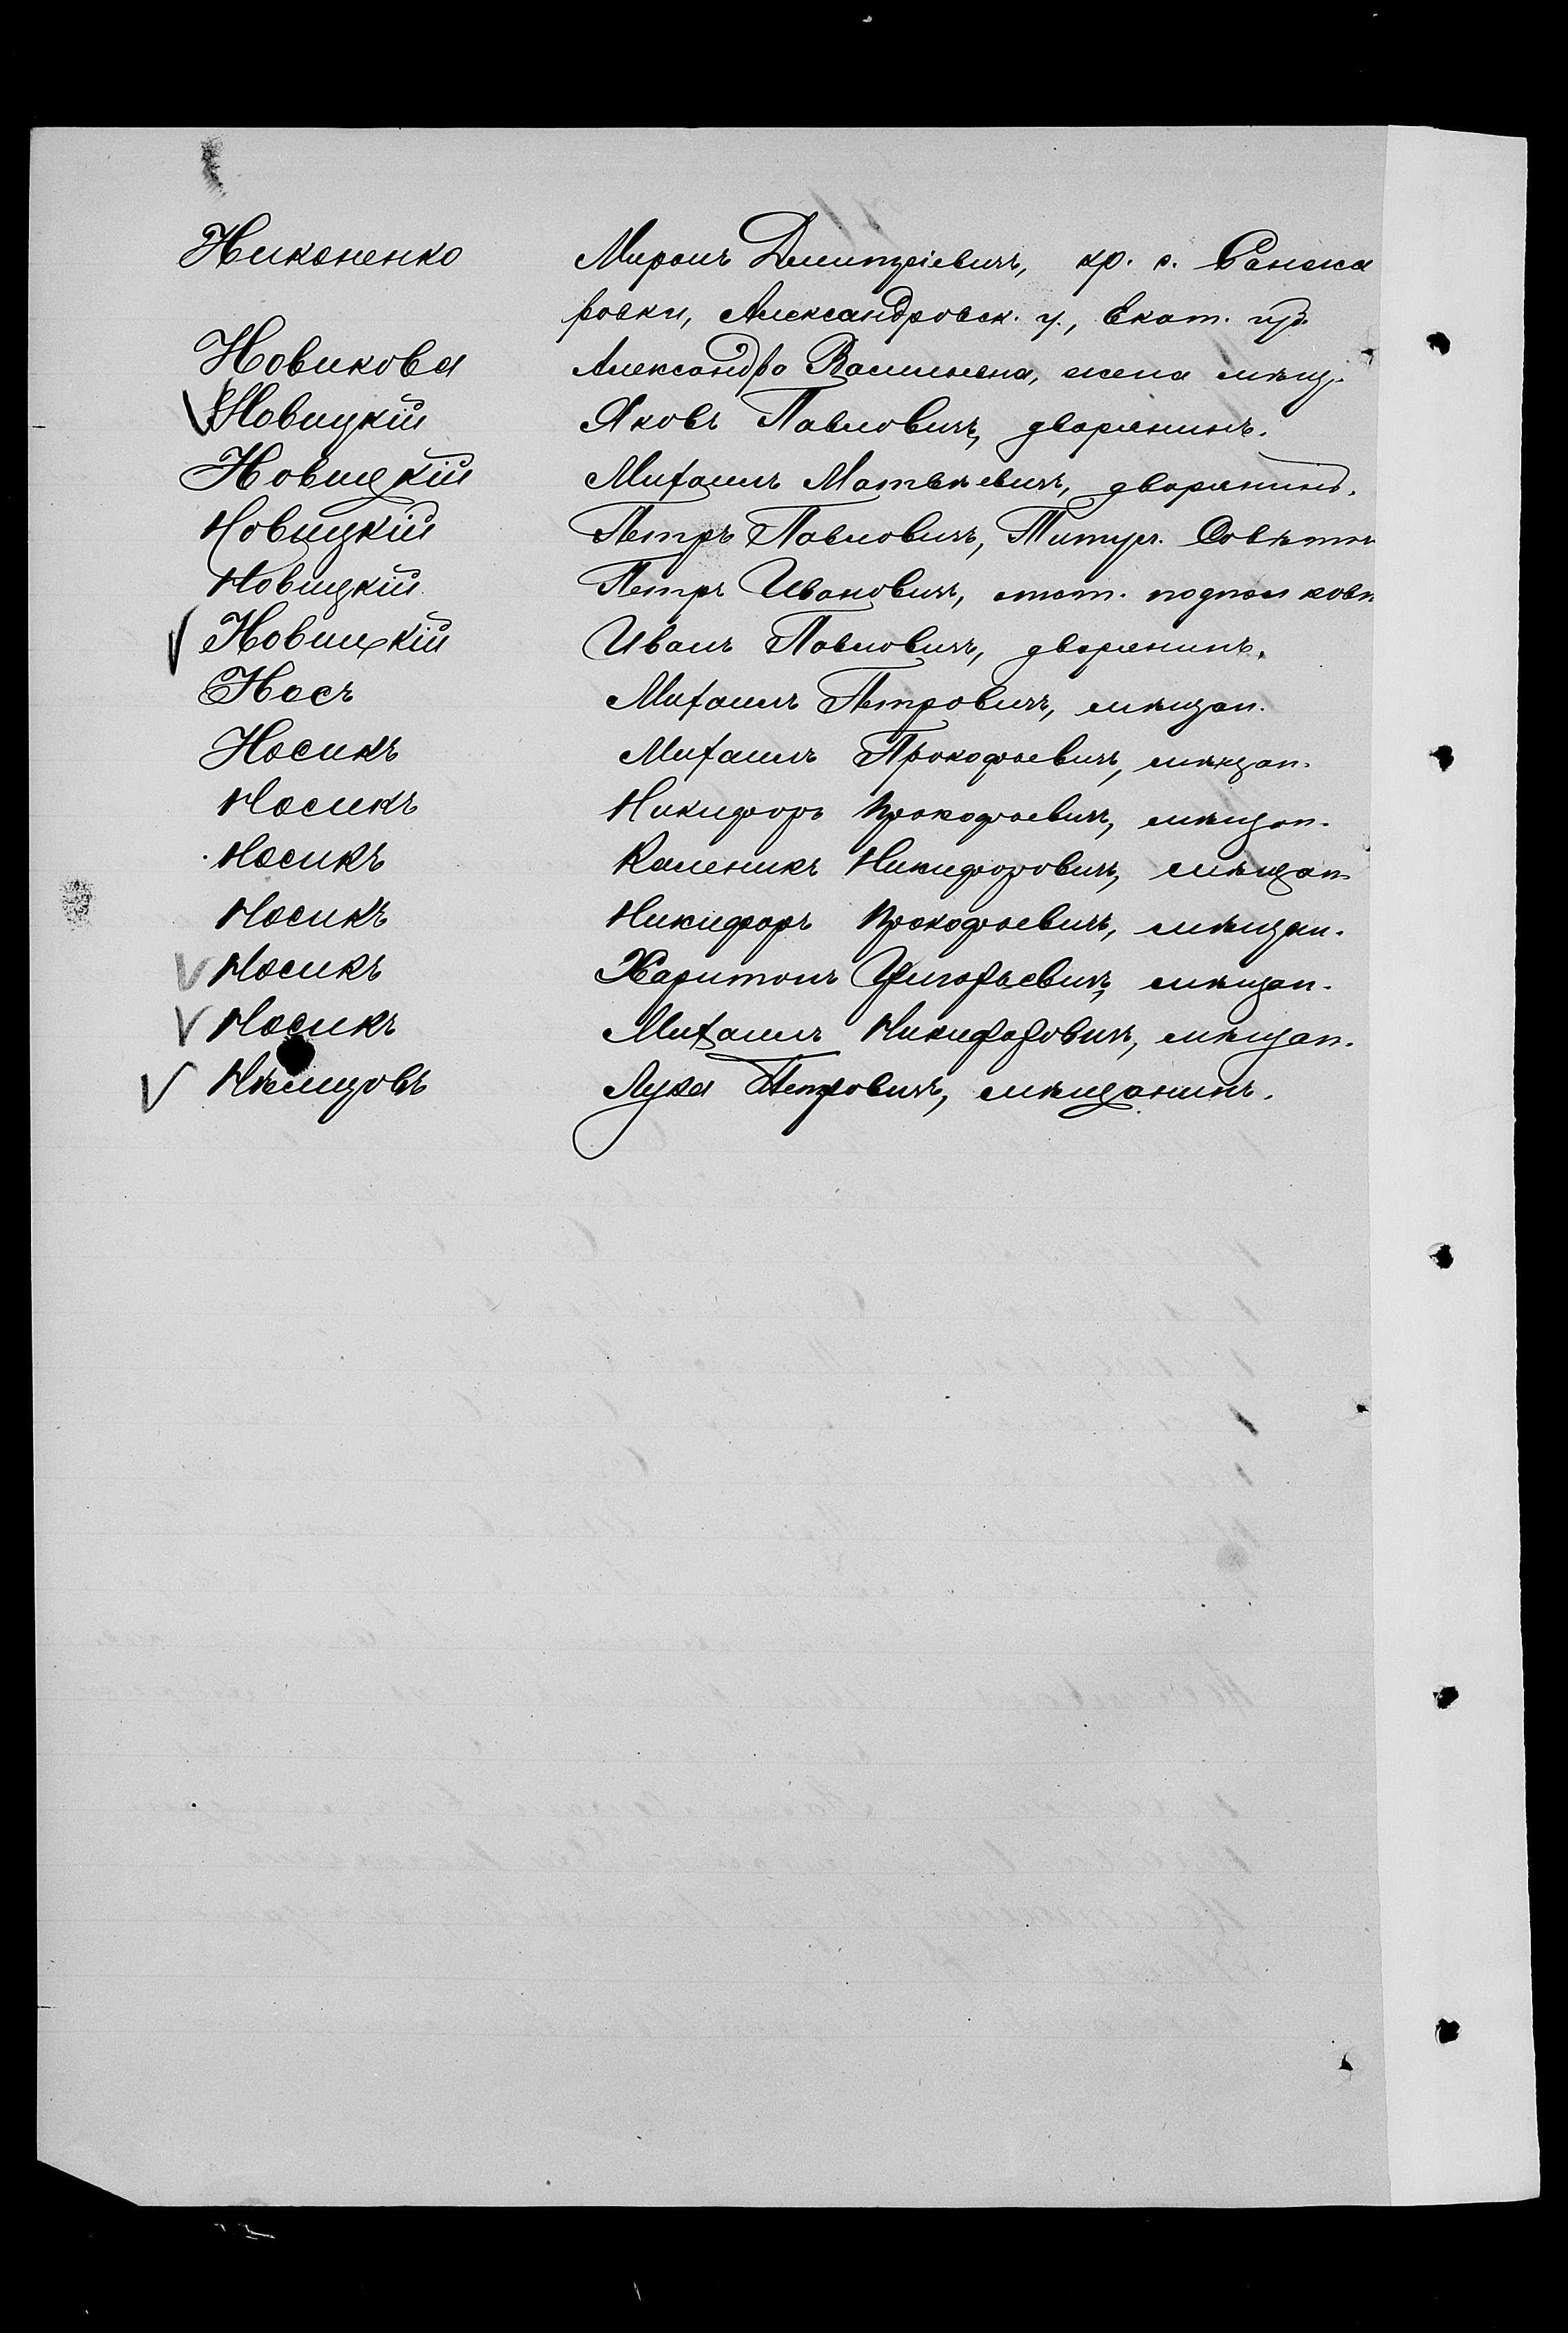 Никоненко Миронъ Дмитріевичъ, кр. с. Санжа
ровки, Александровск. у., Екат. губ.
Новикова Александра Васильевна, жена мѣщ.
Новицкій Яковъ Павловичъ, дворянинъ.
Новицкій Михаилъ Матвѣевичъ, дворянинъ.
Новицкій Петръ Павловичъ, Титул. Совѣтн
Новицкій Петръ Ивановичъ, отст. подполковн
Новицкій Иванъ Павловичъ, дворянинъ.
Носъ Михаилъ Петровичъ, мѣщан.
Носикъ Михаилъ Прокофьевичъ, мѣщан.
Носикъ Никифоръ Прокофьевичъ, мѣщан.
Носикъ Каленикъ Никифоровичъ, мѣщан.
Носикъ Никифоръ Прокофьевичъ, мѣщан.
Носикъ Харитонъ Григорьевичъ, мѣщан.
Носикъ Михаилъ Никифоровичъ, мѣщан.
Нѣмцовъ Лука Петровичъ, мѣщанинъ.